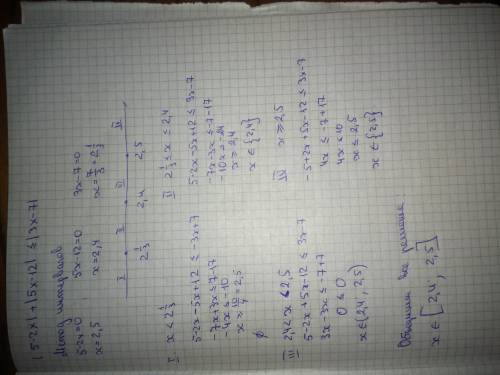 | 5-2x| + |5x-12| ≤ |3x-7|
Метод интервалов
5-2x=0 5x-12=0 3x-7=0
x=2,5 x=2,4 x=7/3=2 1/3
I II III IV
2 1/3 2,4 2,5
I x < 2 1/3
5-2x-5x+12 ≤ -3x+7
-7x+3x ≤ 7-17
-4x ≤ -10
x ≥ 10/4 = 2,5
∅
II 2 1/3 ≤ x ≤ 2,4
5-2x-5x+12 ≤ 3x-7
-7x-3x ≤ -7-17
-10x ≤ -24
x ≥ 2,4
x ∈ {2,4}
III 2,4< x < 2,5
5-2x+5x-12 ≤ 3x-7
3x-3x ≤ -7+7
0 ≤ 0
x ∈ (2,4 , 2,5)
IV x ≥ 2,5
-5+2x+5x-12 ≤ 3x-7
4x ≤ -7+17
4x ≤ 10
x ≤ 2,5
x ∈ {2,5}
Объединим все решения
x ∈ [2,4 , 2,5]